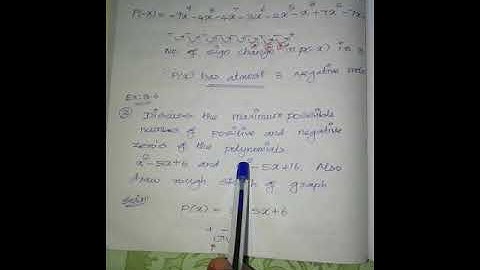 P(-x) = -9x⁹-4x⁸-4x⁷-3x⁶-2x⁵-x³+7x²-7x
No. of sign change in p(-x) is 3
P(x) has atmost 3 negative
Ex: 3.6
② Discuss the maximum possible
number of positive and negative
zeros of the polynomials
x²-5x+6 and -5x+16. Also
draw rough sketch of graph
Soln:
P(x) = 5x+6